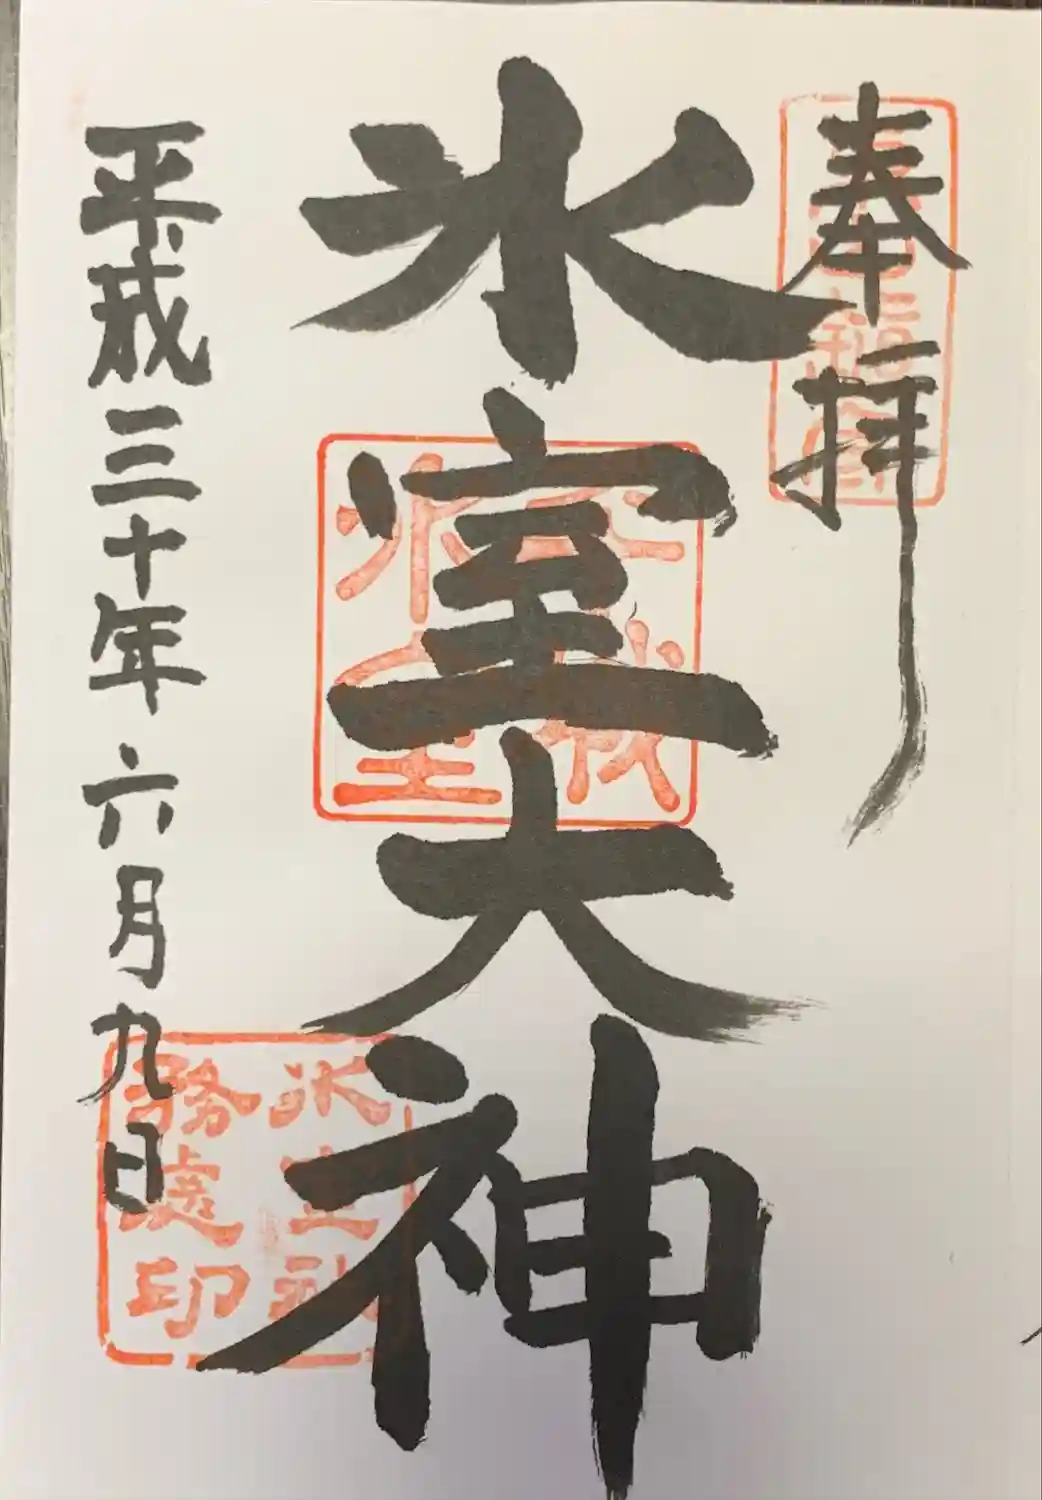 奉拝
氷室大神
平成三十年六月九日
氷室社
務處印